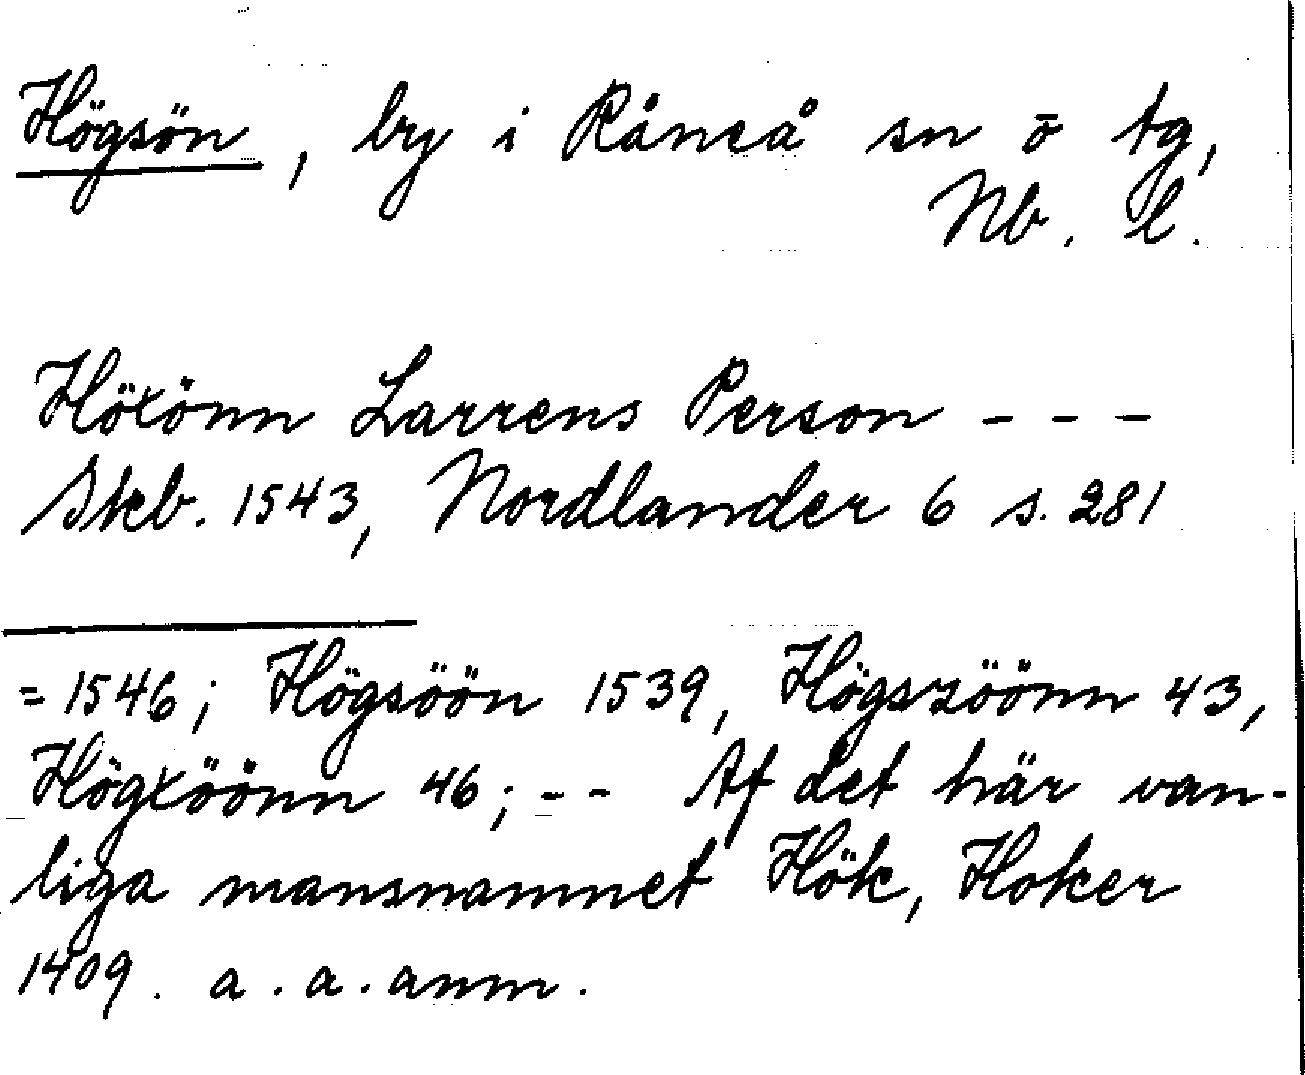 Högsön, by i Råneå sn o tg,
Nb. l.
Höxönn Larrens Person - - -
Skb. 1543, Nordlander 6 s. 281
= 1546; Högsöön 1539, Högszöönn 43,
Högxöönn 46; - - Af det här van-
liga mansnamnet Hök, Hoker
1409. a. a. anm.